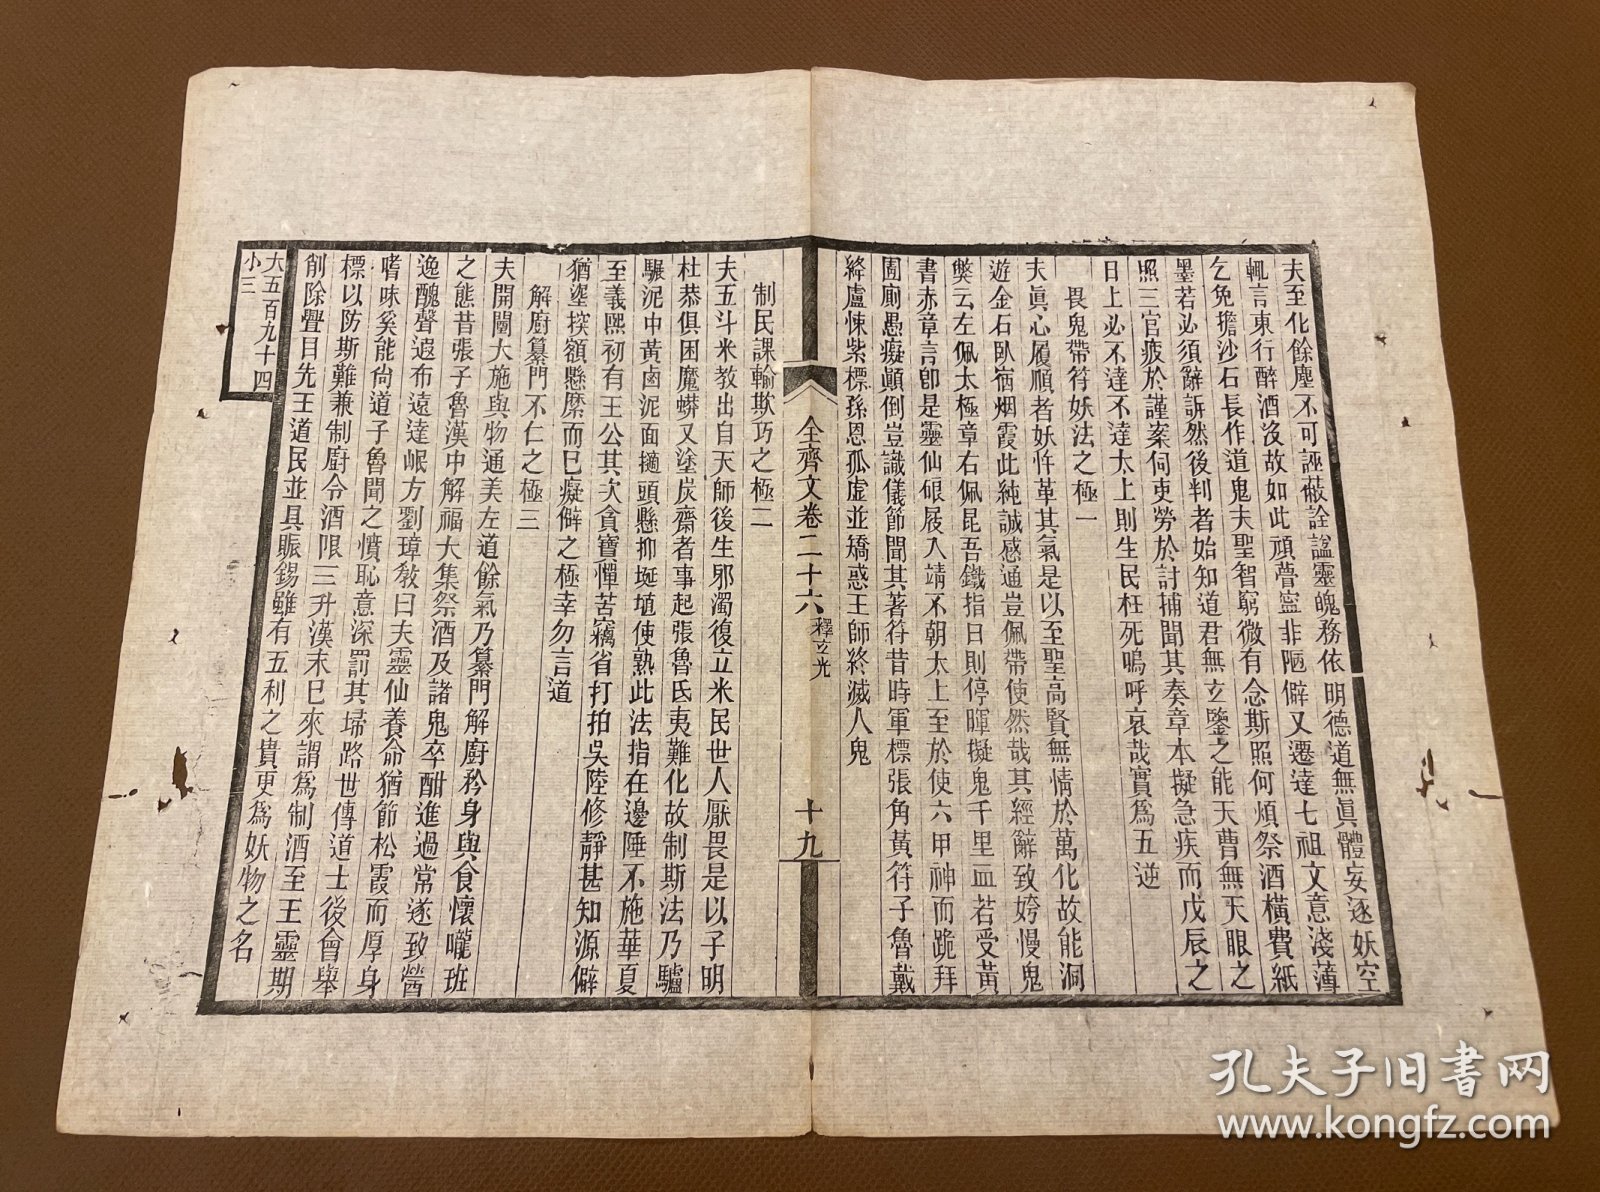 夫至化餘塵不可誣蔽詮謚靈魄務依明德道無眞體妄逐妖空
輒言東行醉酒沒故如此頑瞢寍非陋僻又遷達七祖文意淺薄
乞免擔沙石長作道鬼夫聖智窮微有念斯照何煩祭酒橫費紙
墨若必須辭訴然後判者始知道君無玄鑒之能天曹無天眼之
照三官疲於謹案伺吏勞於討捕聞其奏章本擬急疾而戊辰之
日上必不達不達太上則生民枉死嗚呼哀哉實爲五逆
畏鬼帶符妖法之極一
夫眞心履順者妖忤革其氣是以至聖高賢無情於萬化故能洞
遊金石臥宿烟霞此純誠感通豈佩帶使然哉其經辭致姱慢鬼
弊云左佩太極章右佩昆吾鐵指日則停暉擬鬼千里血若受黃
書赤章言卽是靈仙硠屐入靖不朝太上至於使六甲神而跪拜
圊廁愚癡顚倒豈識儀節聞其著符昔時軍標張角黃符子魯戴
絳盧悚紫標孫恩孤虛並矯惑王師終滅人鬼
全齊文卷二十六 釋玄光 十九
制民課輸欺巧之極二
夫五斗米敎出自天師後生邪濁復立米民世人厭畏是以子明
杜恭俱困魔蟒又塗炭齋者事起張魯氏夷難化故制斯法乃驢
驟泥中黃鹵泥面擿頭懸抑埏埴使熟此法指在邊陲不施華夏
至義熙初有王公其次貪寶憚苦竊省打拍吳陸修靜甚知源僻
猶埿揬額懸縻而巳癡僻之極幸勿言道
解廚纂門不仁之極三
夫開闡大施與物通美左道餘氣乃纂門解廚矜身與食懷嚨班
之態昔張子魯漢中解福大集祭酒及諸鬼卒酣進過常遂致營
逸醜聲遐布遠達岷方劉璋敎曰夫靈仙養命猶節松霞而厚身
嗜味奚能尙道子魯聞之憤恥意深罰其埽路世傳道士後會舉
標以防斯難兼制廚令酒限三升漢末巳來謂爲制酒至王靈期
削除舋目先王道民並具賑錫雖有五利之貴更爲妖物之名
大五百九十四
小三
孔夫子旧書网
www.kongfz.com